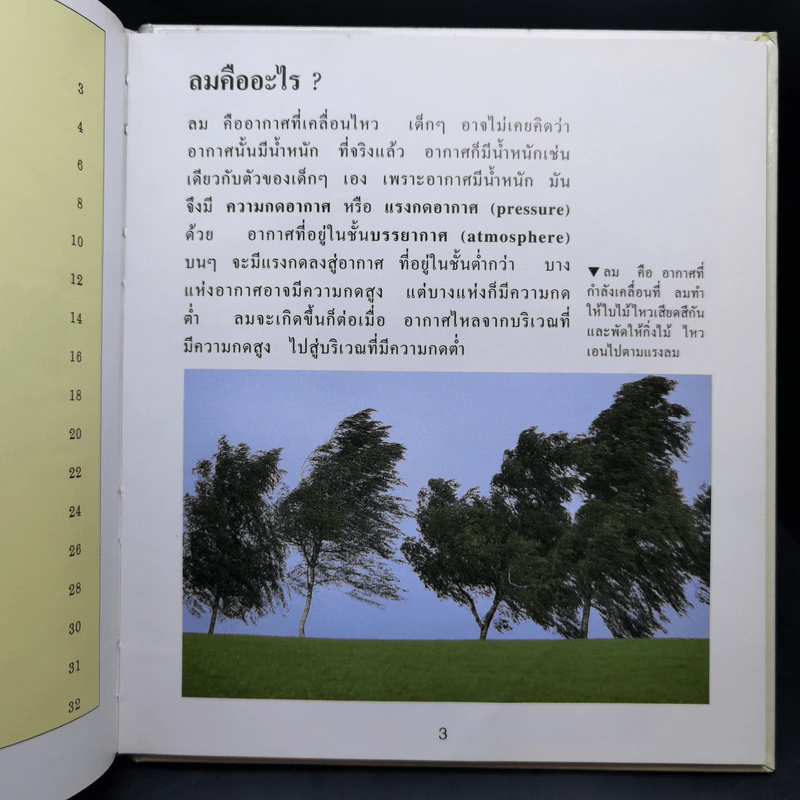 3
4
6
8
10
12
14
16
18
20
22
24
26
28
30
31
32
ลมคืออะไร ?
ลม คืออากาศที่เคลื่อนไหว เด็กๆ อาจไม่เคยคิดว่า
อากาศนั้นมีน้ำหนัก ที่จริงแล้ว อากาศก็มีน้ำหนักเช่น
เดียวกับตัวของเด็กๆ เอง เพราะอากาศมีน้ำหนัก มัน
จึงมี ความกดอากาศ หรือ แรงกดอากาศ (pressure)
ด้วย อากาศที่อยู่ในชั้นบรรยากาศ (atmosphere)
บนๆ จะมีแรงกดลงสู่อากาศ ที่อยู่ในชั้นต่ำกว่า บาง
แห่งอากาศอาจมีความกดสูง แต่บางแห่งก็มีความกด
ต่ำ ลมจะเกิดขึ้นก็ต่อเมื่อ อากาศไหลจากบริเวณที่
มีความกดสูง ไปสู่บริเวณที่มีความกดต่ำ
▼ ลม คือ อากาศที่
กำลังเคลื่อนที่ ลมทำ
ให้ใบไม้ไหวเสียดสีกัน
และพัดให้กิ่งไม้ ไหว
เอนไปตามแรงลม
3